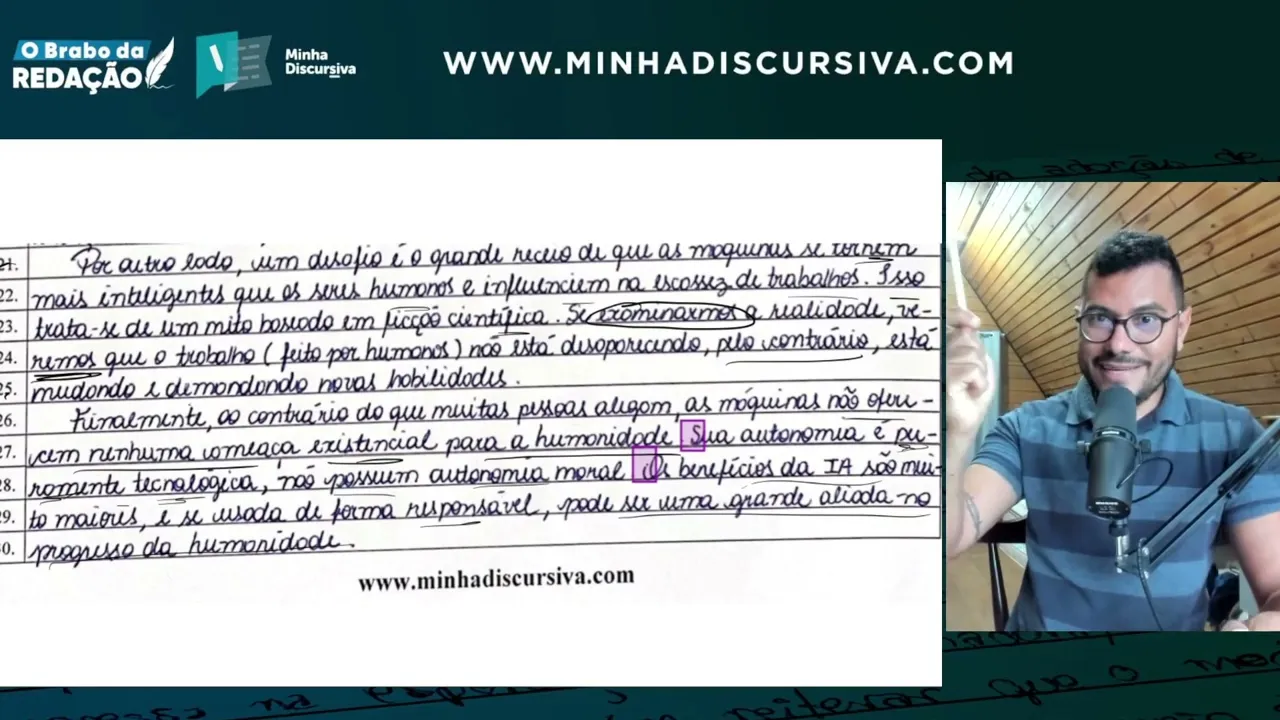 O Brabo da
REDAÇÃO
Minha
Discursiva
WWW.MINHADISCURSIVA.COM
21. Por outro lado, um desafio é o grande receio de que as máquinas se tornem
22. mais inteligentes que os seres humanos e influenciem na escassez de trabalhos. Isso
23. trata-se de um mito baseado em ficção científica. Se examinarmos a realidade, ve-
24. remos que o trabalho (feito por humanos) não está desaparecendo, pelo contrário, está
25. mudando e demandando novas habilidades.
26. Finalmente, ao contrário do que muitas pessoas alegam, as máquinas não ofere-
27. cem nenhuma ameaça existencial para a humanidade Sua autonomia é pu-
28. ramente tecnológica, não possuem autonomia moral Os benefícios da IA são mui-
29. to maiores, e se usada de forma responsável, pode ser uma grande aliada no
30. progresso da humanidade.
www.minhadiscursiva.com